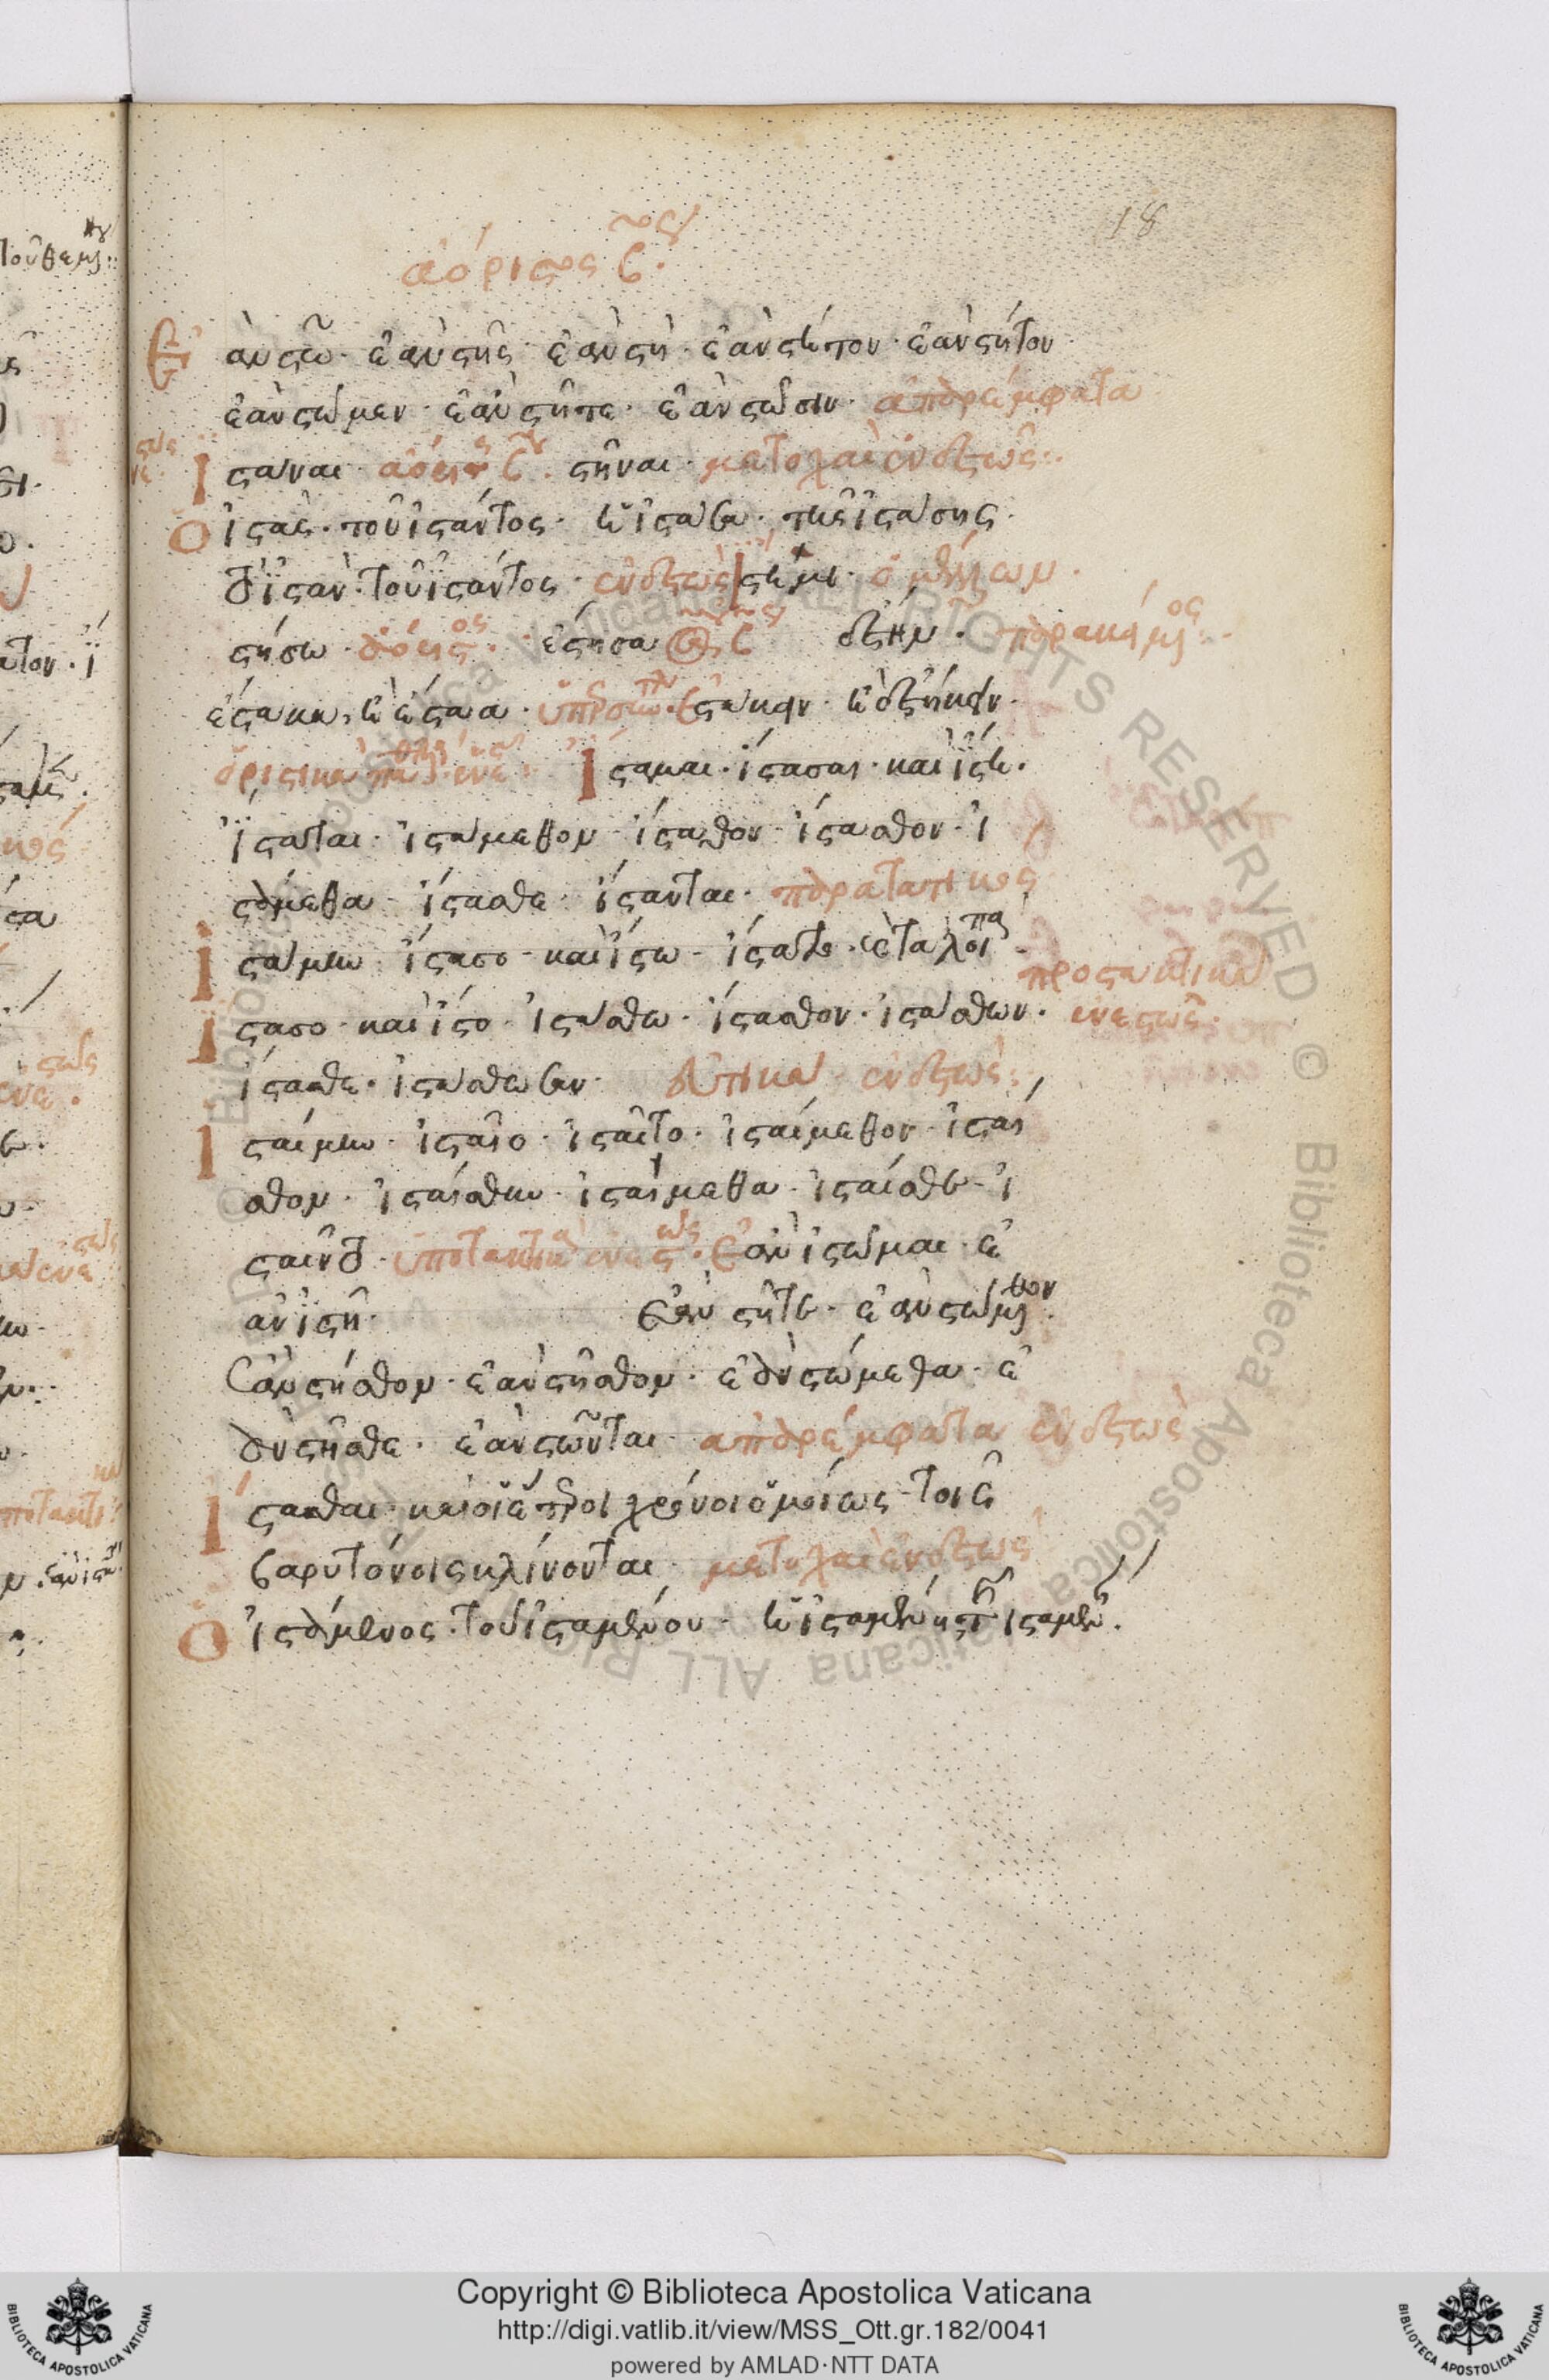 18
ἀόριστος β.
Ἐὰν στῶ· ἐὰν στῆς· ἐὰν στῆ· ἐὰν στήτον· ἐὰν στῆτον·
ἐὰν στῶμεν· ἐὰν στῆτε· ἐὰν στῶσιν· ἀπαρέμφατα
Ἱστάναι· ἀόριστος β. στῆναι· μετοχαὶ ἐνεστῶς:.
Ὁ ἱστὰς· τοῦ ἱστάντος· ἡ ἱστᾶσα· τῆς ἱστάσης·
τὸ ἱστὰν· τοῦ ἱστάντος· ἐνεστὼς ἵστημι· ὁ μέλλων·
στήσω· ἀόριστος· ἔστησα β ἔστην· παρακείμενος:.
ἕστακα, ἢ ἕσταα· ὑπερσυντελικος· ἑστάκειν· ἢ ἑστήκειν·
ὁριστικὰ παθητικ ενεστ Ἵσταμαι· ἵστασαι· καὶ ἵστη.
ἵσταται· ἱστάμεθον· ἵστασθον· ἵστασθον· ἱ
στάμεθα· ἵστασθε· ἵστανται· παρατατικὸς
Ἱστάμην· ἵστασο· καὶ ἵστω· ἵστατο· καὶ τὰ λοιπά·
προστακτικὰ
Ἵστασο· καὶ ἵστο· ἱστάσθω· ἵστασθον· ἱστάσθων. ἐνεστῶς·
ἵστασθε· ἱστάσθωσαν· εὐκτικὰ· ἐνεστὼς:
Ἱσταίμην· ἱσταῖο· ἱσταῖτο· ἱσταίμεθον· ἱσταί
σθον· ἱσταίσθην· ἱσταίμεθα· ἱσταίσθε· ἱ
σταῖντο· ὑποτακτικὰ ἐνεστώς· Ἐὰν ἱστῶμαι· ἐ
ὰν ἱστῆ· ἐὰν στῆτε· ἐὰν στώμεθον.
Ἐὰν στήσθον· ἐὰν στῆσθον· ἐὰν στώμεθα· ἐ
ὰν στῆσθε· ἐὰν στῶνται· ἀπαρέμφατα ἐνεστὼς
Ἵστασθαι· καὶ οἱ ἕτεροι χρόνοι ὁμοίως τοῖς
βαρυτόνοις κλίνονται· μετοχαὶ ἐνεστῶς
Ὁ ἱστάμενος· τοῦ ἱσταμένου· ἡ ἱσταμένη τῆς ἱσταμένης.
Copyright © Biblioteca Apostolica Vaticana
http://digi.vatlib.it/view/MSS_Ott.gr.182/0041
powered by AMLAD·NTT DATA